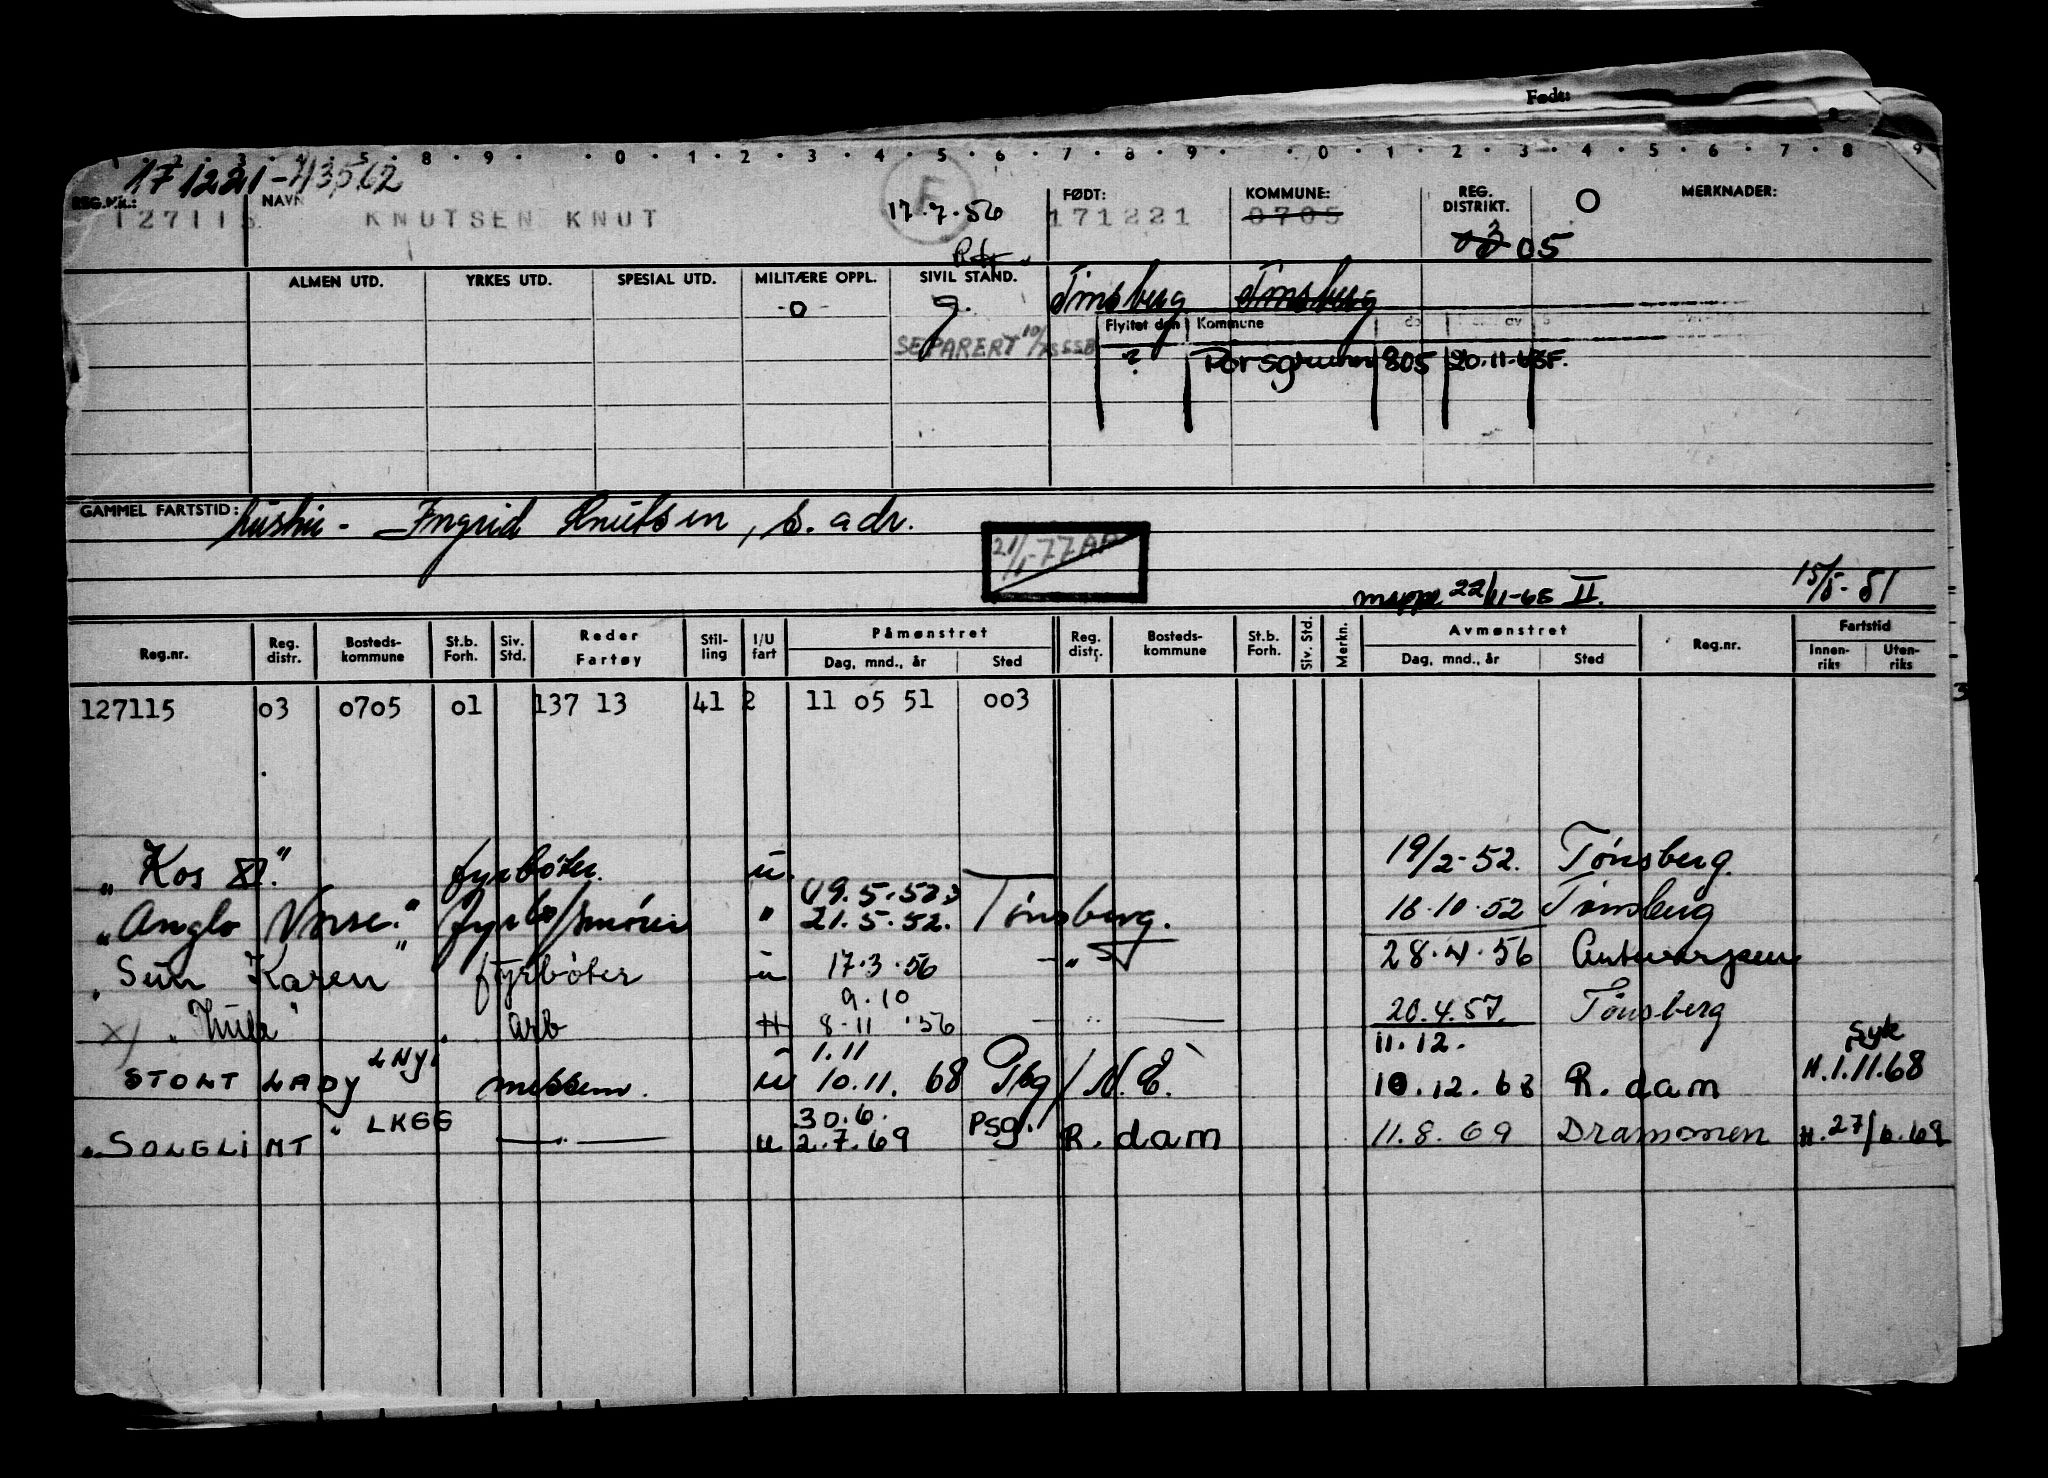 Født:
8 · 9 · · 0 · 1 · 2 · 3 · 4 · 5 · 6 · 7 · 8 · 9 · · 0 · 1 · 2 · 3 · 4 · 5 · 6 · 7 · 8 9
171221-43562
REG.NR.: NAVN FØDT: KOMMUNE: REG. DISTRIKT. O MERKNADER:
127115 KNUTSEN KNUT F 17.7.56 171221 0705 05
ALMEN UTD. YRKES UTD. SPESIAL UTD. MILITÆRE OPPL. SIVIL STAND. Tønsberg Tønsberg
-0- g.
Flyttet den Kommune
SEPARERT ? Porsgrunn 805 20.11.63F.
GAMMEL FARTSTID: hustru - Ingrid Knutsen, s. adr.
21/1-77AA
mappe 22/11-65 II. 15/5-51
Reg.nr. Reg. distr. Bosteds-kommune St.b. Forh. Siv. Std. Reder Fartøy Stil-ling I/U fart Påmønstret Dag, mnd., år Sted Reg. distr. Bosteds-kommune St.b. Forh. Siv. Std. Merkn. Avmønstret Dag, mnd., år Sted Reg.nr. Fartstid Innen-riks Uten-riks
127115 03 0705 01 137 13 41 2 11 05 51 003
3
"Kos XI." fyrbøter. u. 19/2-52. Tønsberg.
19.5.52
"Anglo Norse." fyrb/smører " 21.5.52. Tønsberg. 16.10.52 Tønsberg
"Sun Karen" fyrbøter u 17.3.56 - " - 28.4.56 Antwerpen
9.10
x) "Thule" arb H 8-11.56 — " — 20.4.57. Tønsberg
1.11 11.12. Syk
STOLT LADY LNYI messem. u 10.11.68 Pbg / N.E. 10.12.68 R.dam H.1.11.68
30.6.
"SOLGLIMT" LKGG — " — u 2.7.69 Psg. R.dam 11.8.69 Drammen H.27/6.69